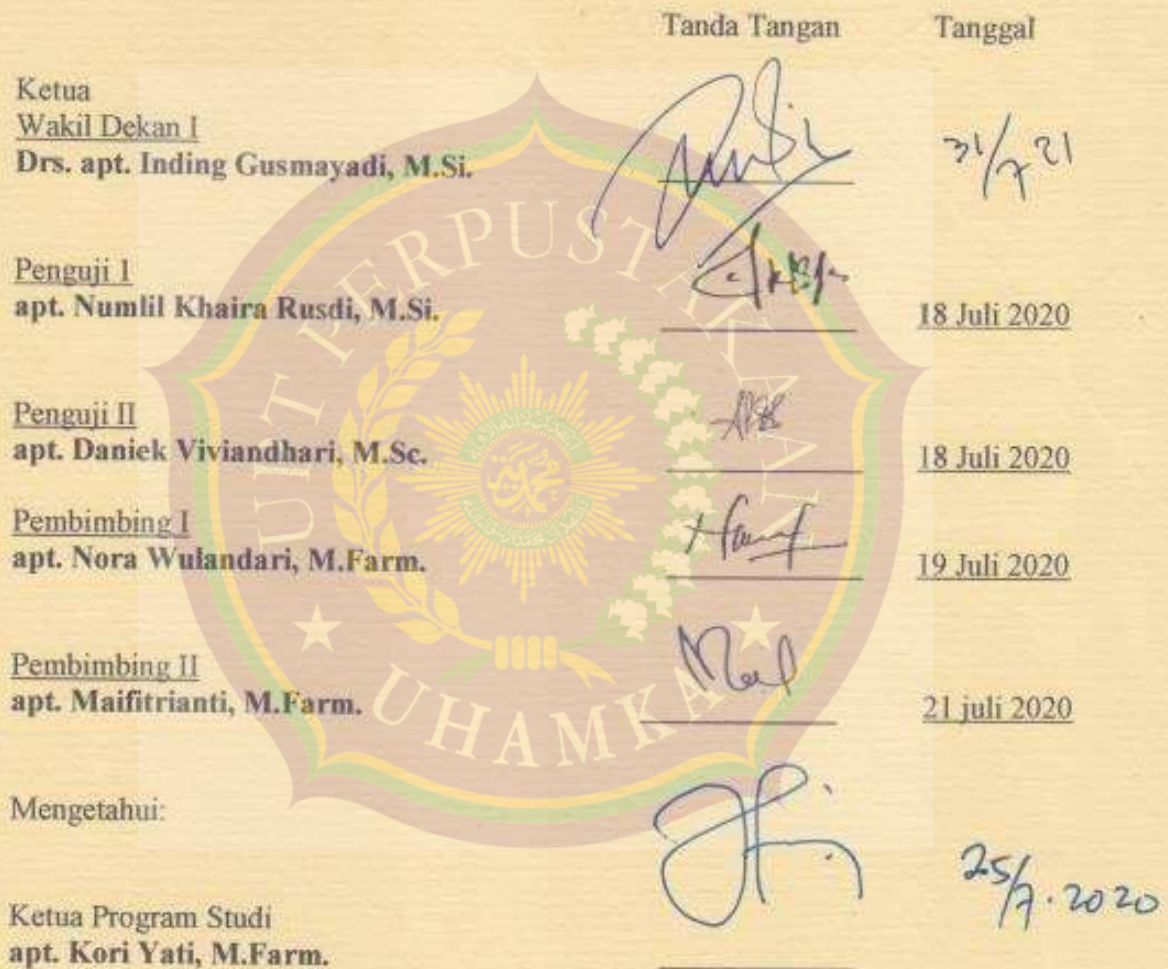 Tanda Tangan Tanggal
Ketua
Wakil Dekan I
Drs. apt. Inding Gusmayadi, M.Si. 31/7 21
Penguji I
apt. Numlil Khaira Rusdi, M.Si. 18 Juli 2020
Penguji II
apt. Daniek Viviandhari, M.Sc. 18 Juli 2020
Pembimbing I
apt. Nora Wulandari, M.Farm. 19 Juli 2020
Pembimbing II
apt. Maifitrianti, M.Farm. 21 juli 2020
Mengetahui:
25/7.2020
Ketua Program Studi
apt. Kori Yati, M.Farm.
UPT PERPUSTAKAAN
UHAMKA
محمد